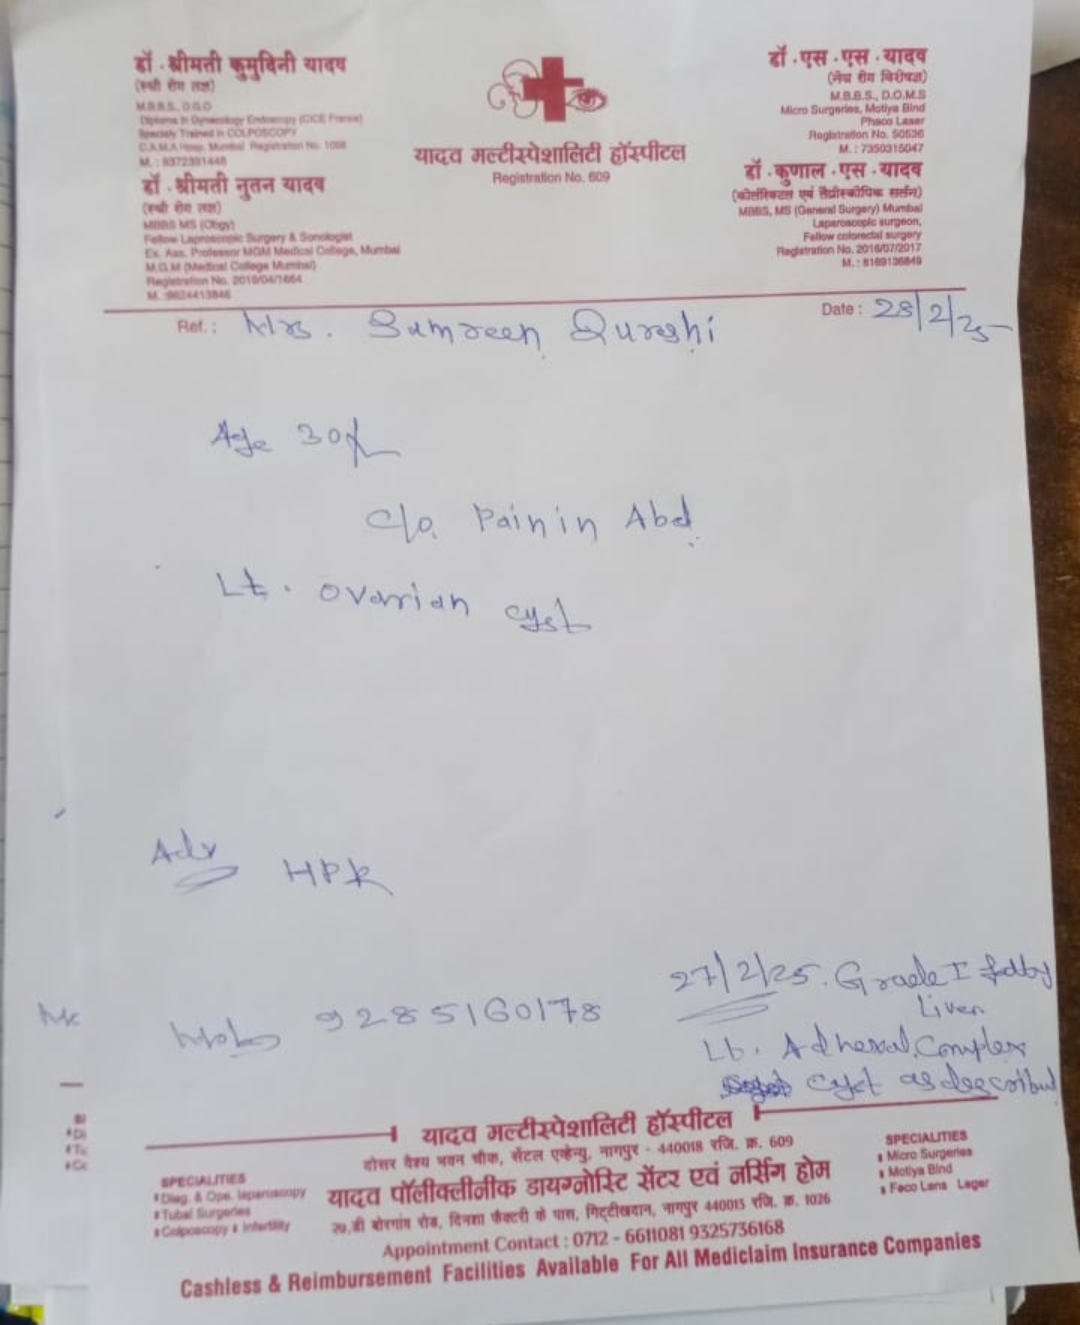 डॉ. श्रीमती कुमुदिनी यादव
(स्त्री रोग तज्ञ)
M.B.B.S., D.G.O
Diploma in Gynecology Endoscopy (CICE France)
Specialy Trained in COLPOSCOPY
C.A.M.A Hosp. Mumbai Registration No. 1098
M. : 9372391448
डॉ. श्रीमती नुतन यादव
(स्त्री रोग तज्ञ)
MBBS MS (Obgy)
Fellow Laproscopic Surgery & Sonologist
Ex. Ass. Professor MGM Medical College, Mumbai
M.G.M (Medical College Mumbai)
Registration No. 2019/04/1664
M. :9624413846
यादव मल्टीस्पेशालिटी हॉस्पीटल
Registration No. 609
डॉ. एस. एस. यादव
(नेत्र रोग विशेषज्ञ)
M.B.B.S., D.O.M.S
Micro Surgeries, Motiya Bind
Phaco Laser
Registration No. 50536
M. : 7350315047
डॉ. कुणाल. एस. यादव
(कोलोरेक्टल एवं लैप्रोस्कोपिक सर्जन)
MBBS, MS (General Surgery) Mumbai
Laparoscopic surgeon,
Fellow colorectal surgery
Registration No. 2016/07/2017
M. : 8169136849
Ref. : Mrs. Sumreen Qureshi
Date : 28/2/25
Age 30
c/o. Pain in Abd.
Lt. ovarian cyst
Adv
HPR
27/2/25. Grade I fatty
Liver
Mob 9285160178
Lt. Adnexal Complex
cyst as described
यादव मल्टीस्पेशालिटी हॉस्पीटल
दोसर वैश्य भवन चौक, सेंटल एव्हेन्यु, नागपुर - 440018 रजि. क्र. 609
यादव पॉलीक्लीनीक डायग्नोस्टि सेंटर एवं नर्सिंग होम
२७,बी बोरगांव रोड, दिनशा फॅक्टरी के पास, गिट्टीखदान, नागपुर 440013 रजि. क्र. 1026
Appointment Contact : 0712 - 6611081 9325736168
Cashless & Reimbursement Facilities Available For All Mediclaim Insurance Companies
SPECIALITIES
Diag. & Ope. laparuscopy
Tubal Surgeries
Colposcopy Infertility
SPECIALITIES
Micro Surgeries
Motiya Bind
Faco Lans Lager